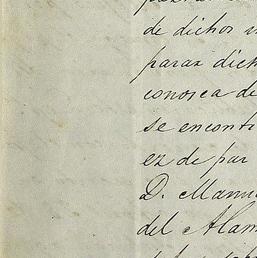 de dichos
parar dich
conosca de
se encont
ez de par
D. Manu
del Alam